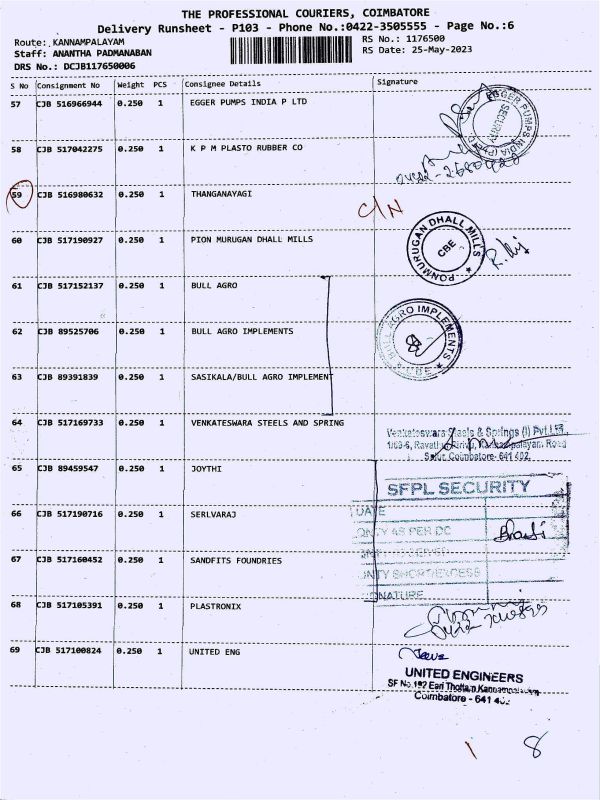 THE PROFESSIONAL COURIERS, COIMBATORE
Delivery Runsheet - P103 - Phone No.:0422-3505555 - Page No.:6
Route: KANNAMPALAYAM
RS No.: 1176500
Staff: ANANTHA PADMANABAN
RS Date: 25-May-2023
DRS No.: DCJB117650006
S No Consignment No Weight PCS Consignee Details Signature
57 CJB 516966944 0.250 1 EGGER PUMPS INDIA P LTD
EGGER PUMPS INDIA (P) LTD
SECURITY
58 CJB 517042275 0.250 1 K P M PLASTO RUBBER CO
59 CJB 516980632 0.250 1 THANGANAYAGI
C/N
60 CJB 517190927 0.250 1 PION MURUGAN DHALL MILLS
PONMURUGAN DHALL MILLS
CBE
61 CJB 517152137 0.250 1 BULL AGRO
62 CJB 89525706 0.250 1 BULL AGRO IMPLEMENTS
BULL AGRO IMPLEMENTS
CBE
63 CJB 89391839 0.250 1 SASIKALA/BULL AGRO IMPLEMENT
64 CJB 517169733 0.250 1 VENKATESWARA STEELS AND SPRING
Venkateswara Steels & Springs (I) Pvt.Ltd.,
Road
Sulur, Coimbatore- 641 402.
65 CJB 89459547 0.250 1 JOYTHI
SFPL SECURITY
DATE
66 CJB 517190716 0.250 1 SERLVARAJ
QNTY AS PER DC
67 CJB 517160452 0.250 1 SANDFITS FOUNDRIES
QNTY SHORT/EXCESS
SIGNATURE
68 CJB 517105391 0.250 1 PLASTRONIX
69 CJB 517100824 0.250 1 UNITED ENG
UNITED ENGINEERS
SF No.192 Eari Thottam
Coimbatore - 641 402.
1 8